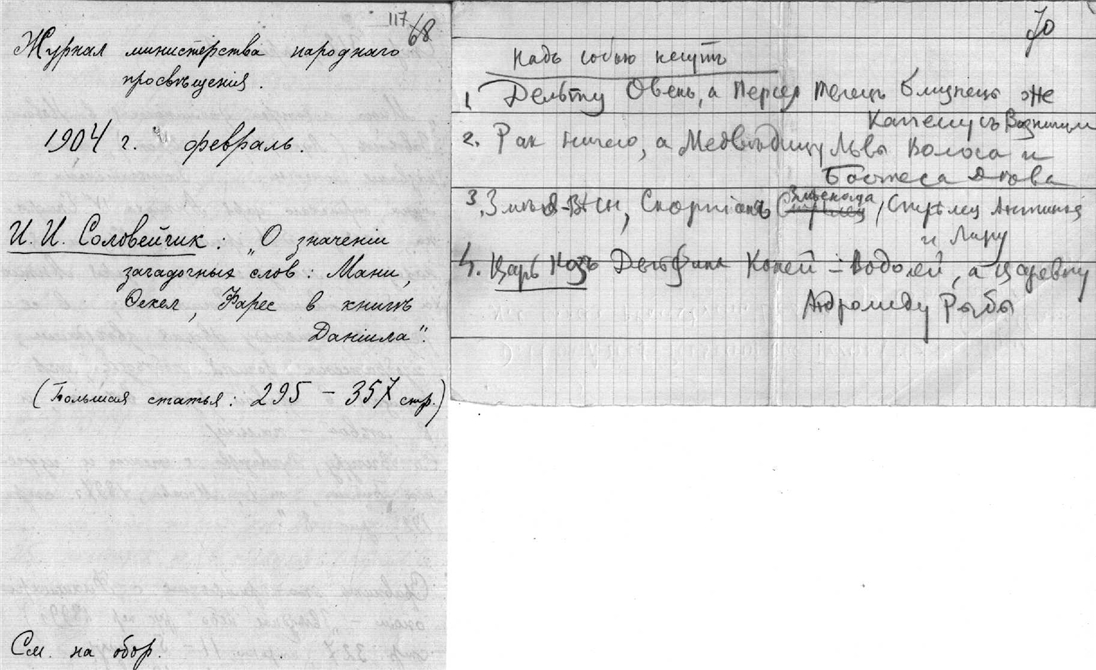 117
68
Журнал министерства народнаго
просвѣщения.
1904 г. февраль.
И. И. Соловейчик: „О значенiи
загадочных слов: Мани,
Фекел, Фарес в книгѣ
Данiила".
(Большая статья: 295 – 357 стр.)
См. на обор.
70
надъ собою несутъ
1. Дельту Овенъ, а Персея Телецъ Близнецы же
Капеллу съ Возницым
2. Рак ничего, а Медвѣдицу Львы Волоса и
Боотеса Дѣва
3. Змѣя-Вѣсы, Скорпiонъ Змѣеносца, Стрѣлец Антиноя
и Лиру
4. Царь Козъ Дельфина Коней – Водолей, а Царевну
Андромеду Рыбы